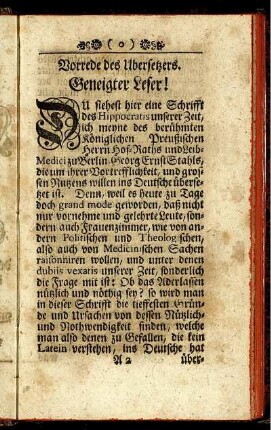 ( o )
Vorrede des Ubersetzers.
Geneigter Leser!
DU siehest hier eine Schrifft
des Hippocratis unserer Zeit,
ich meyne des berühmten
Königlichen Preußischen
Herrn Hof-Raths und Leib-
Medici zu Berlin, Georg Ernst Stahls,
die um ihrer Vortrefflichkeit, und gros-
sen Nutzens willen ins Deutsche überse-
tzet ist. Denn, weil es heute zu Tage
doch grand mode geworden, daß nicht
nur vornehme und gelehrte Leute, son-
dern auch Frauenzimmer, wie von an-
dern Politischen und Theologischen,
also auch von Medicinischen Sachen
raisonniren wollen, und unter denen
dubiis vexatis unserer Zeit, sonderlich
die Frage mit ist: Ob das Aderlassen
nützlich und nöthig sey? so wird man
in dieser Schrifft die tieffesten Grün-
de und Ursachen von dessen Nützlich-
und Nothwendigkeit finden, welche
man also denen zu Gefallen, die kein
Latein verstehen, ins Deutsche hat
A 2 über-